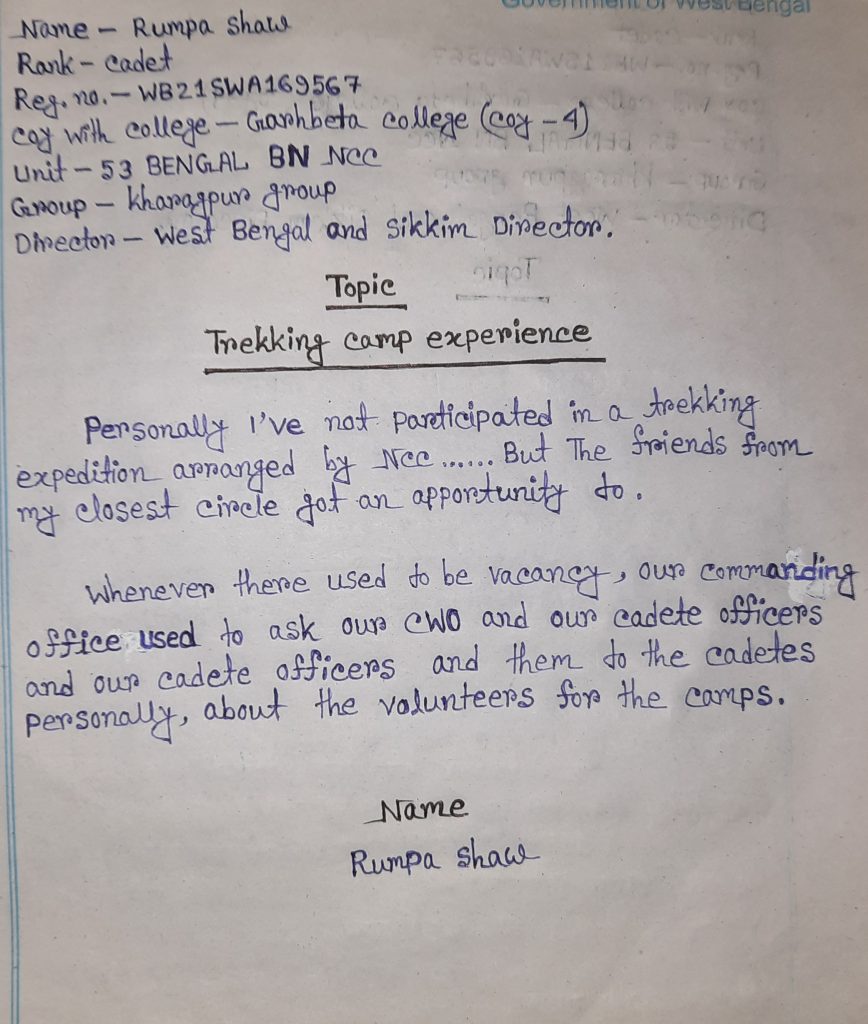 Government of West Bengal
Name – Rumpa Shaw
Rank – cadet
Reg. no. – WB21SWA169567
coy with college – Garhbeta college (coy – 4)
Unit – 53 BENGAL BN NCC
Group – kharagpur group
Director – West Bengal and Sikkim Director.
Topic
Trekking camp experience
Personally I've not participated in a trekking
expedition arranged by NCC ...... But The friends from
my closest circle got an opportunity to.
Whenever there used to be vacancy, our commanding
office used to ask our CWO and our cadete officers
and our cadete officers and them to the cadetes
personally, about the volunteers for the camps.
Name
Rumpa Shaw